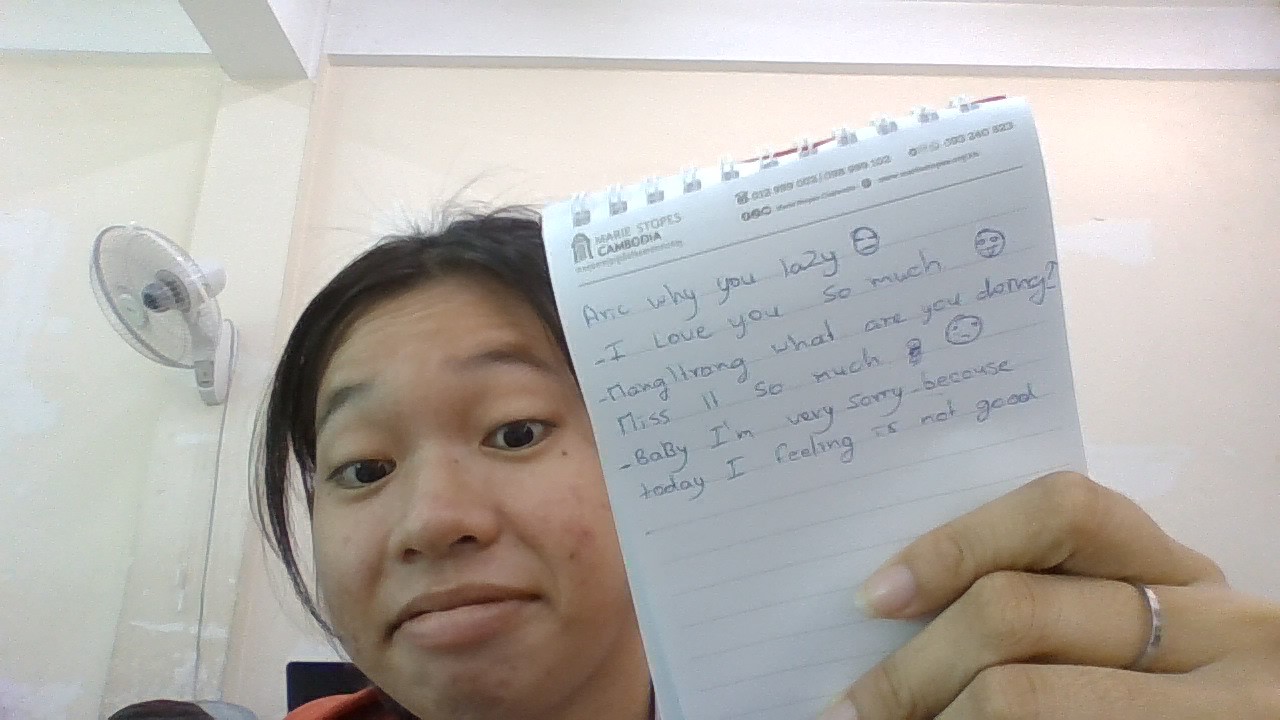 MARIE STOPES
CAMBODIA
012 999 002 | 098 999 102
093 240 823
Marie Stopes Cambodia
Aric why you lazy
-I Love you so much
-Mangllrang what are you doing?
Miss ll so much
-BaBy I'm very sorry because
today I feeling is not good